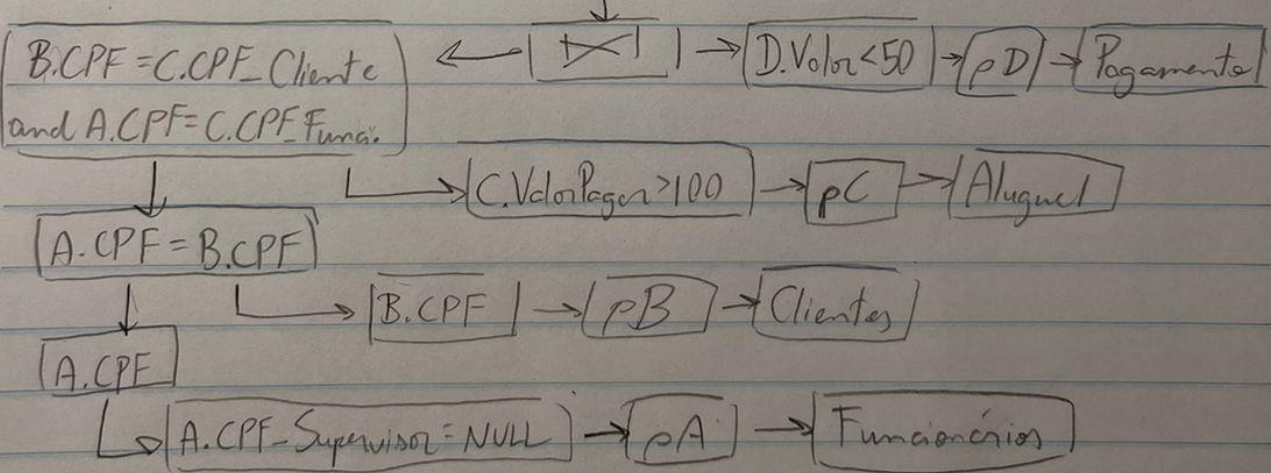 B.CPF = C.CPF_Cliente
and A.CPF = C.CPF_Funci.
⋈
D.Valor < 50
ρD
Pagamento
C.ValorPagar > 100
ρC
Aluguel
A.CPF = B.CPF
B.CPF
ρB
Clientes
A.CPF
A.CPF_Supervisor = NULL
ρA
Funcionários